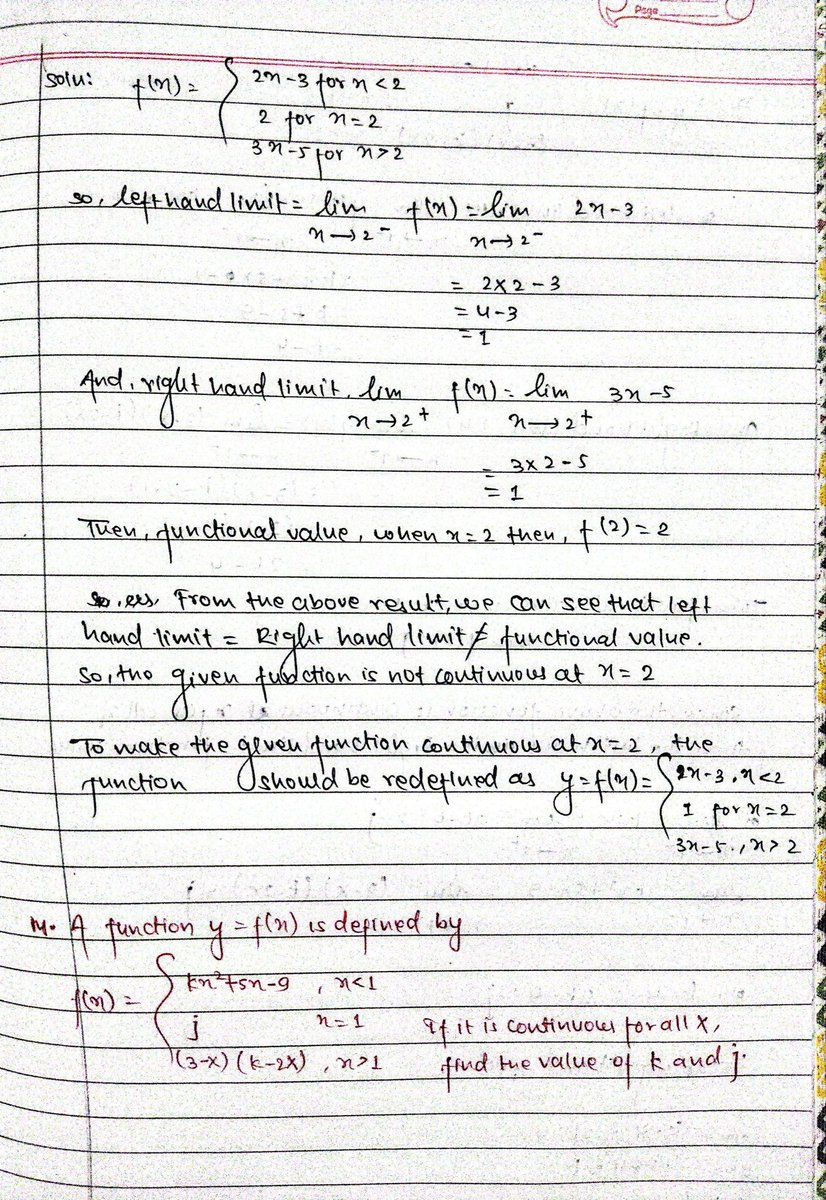 Page
Soln: f(x) = { 2x-3 for x < 2
2 for x = 2
3x-5 for x > 2
so, left hand limit = lim f(x) = lim 2x-3
x→2⁻ x→2⁻
= 2×2-3
= 4-3
= 1
And, right hand limit, lim f(x) = lim 3x-5
x→2+ x→2+
= 3×2-5
= 1
Then, functional value, when x=2 then, f(2) = 2
From the above result, we can see that left
hand limit = Right hand limit ≠ functional value.
So, the given function is not continuous at x = 2
To make the given function continuous at x=2, the
function should be redefined as y = f(x) = { 2x-3, x<2
1 for x=2
3x-5, x>2
14. A function y = f(x) is defined by
f(x) = { kx²+5x-9 , x<1
j x=1 If it is continuous for all x,
(3-x)(k-2x) , x>1 find the value of k and j.